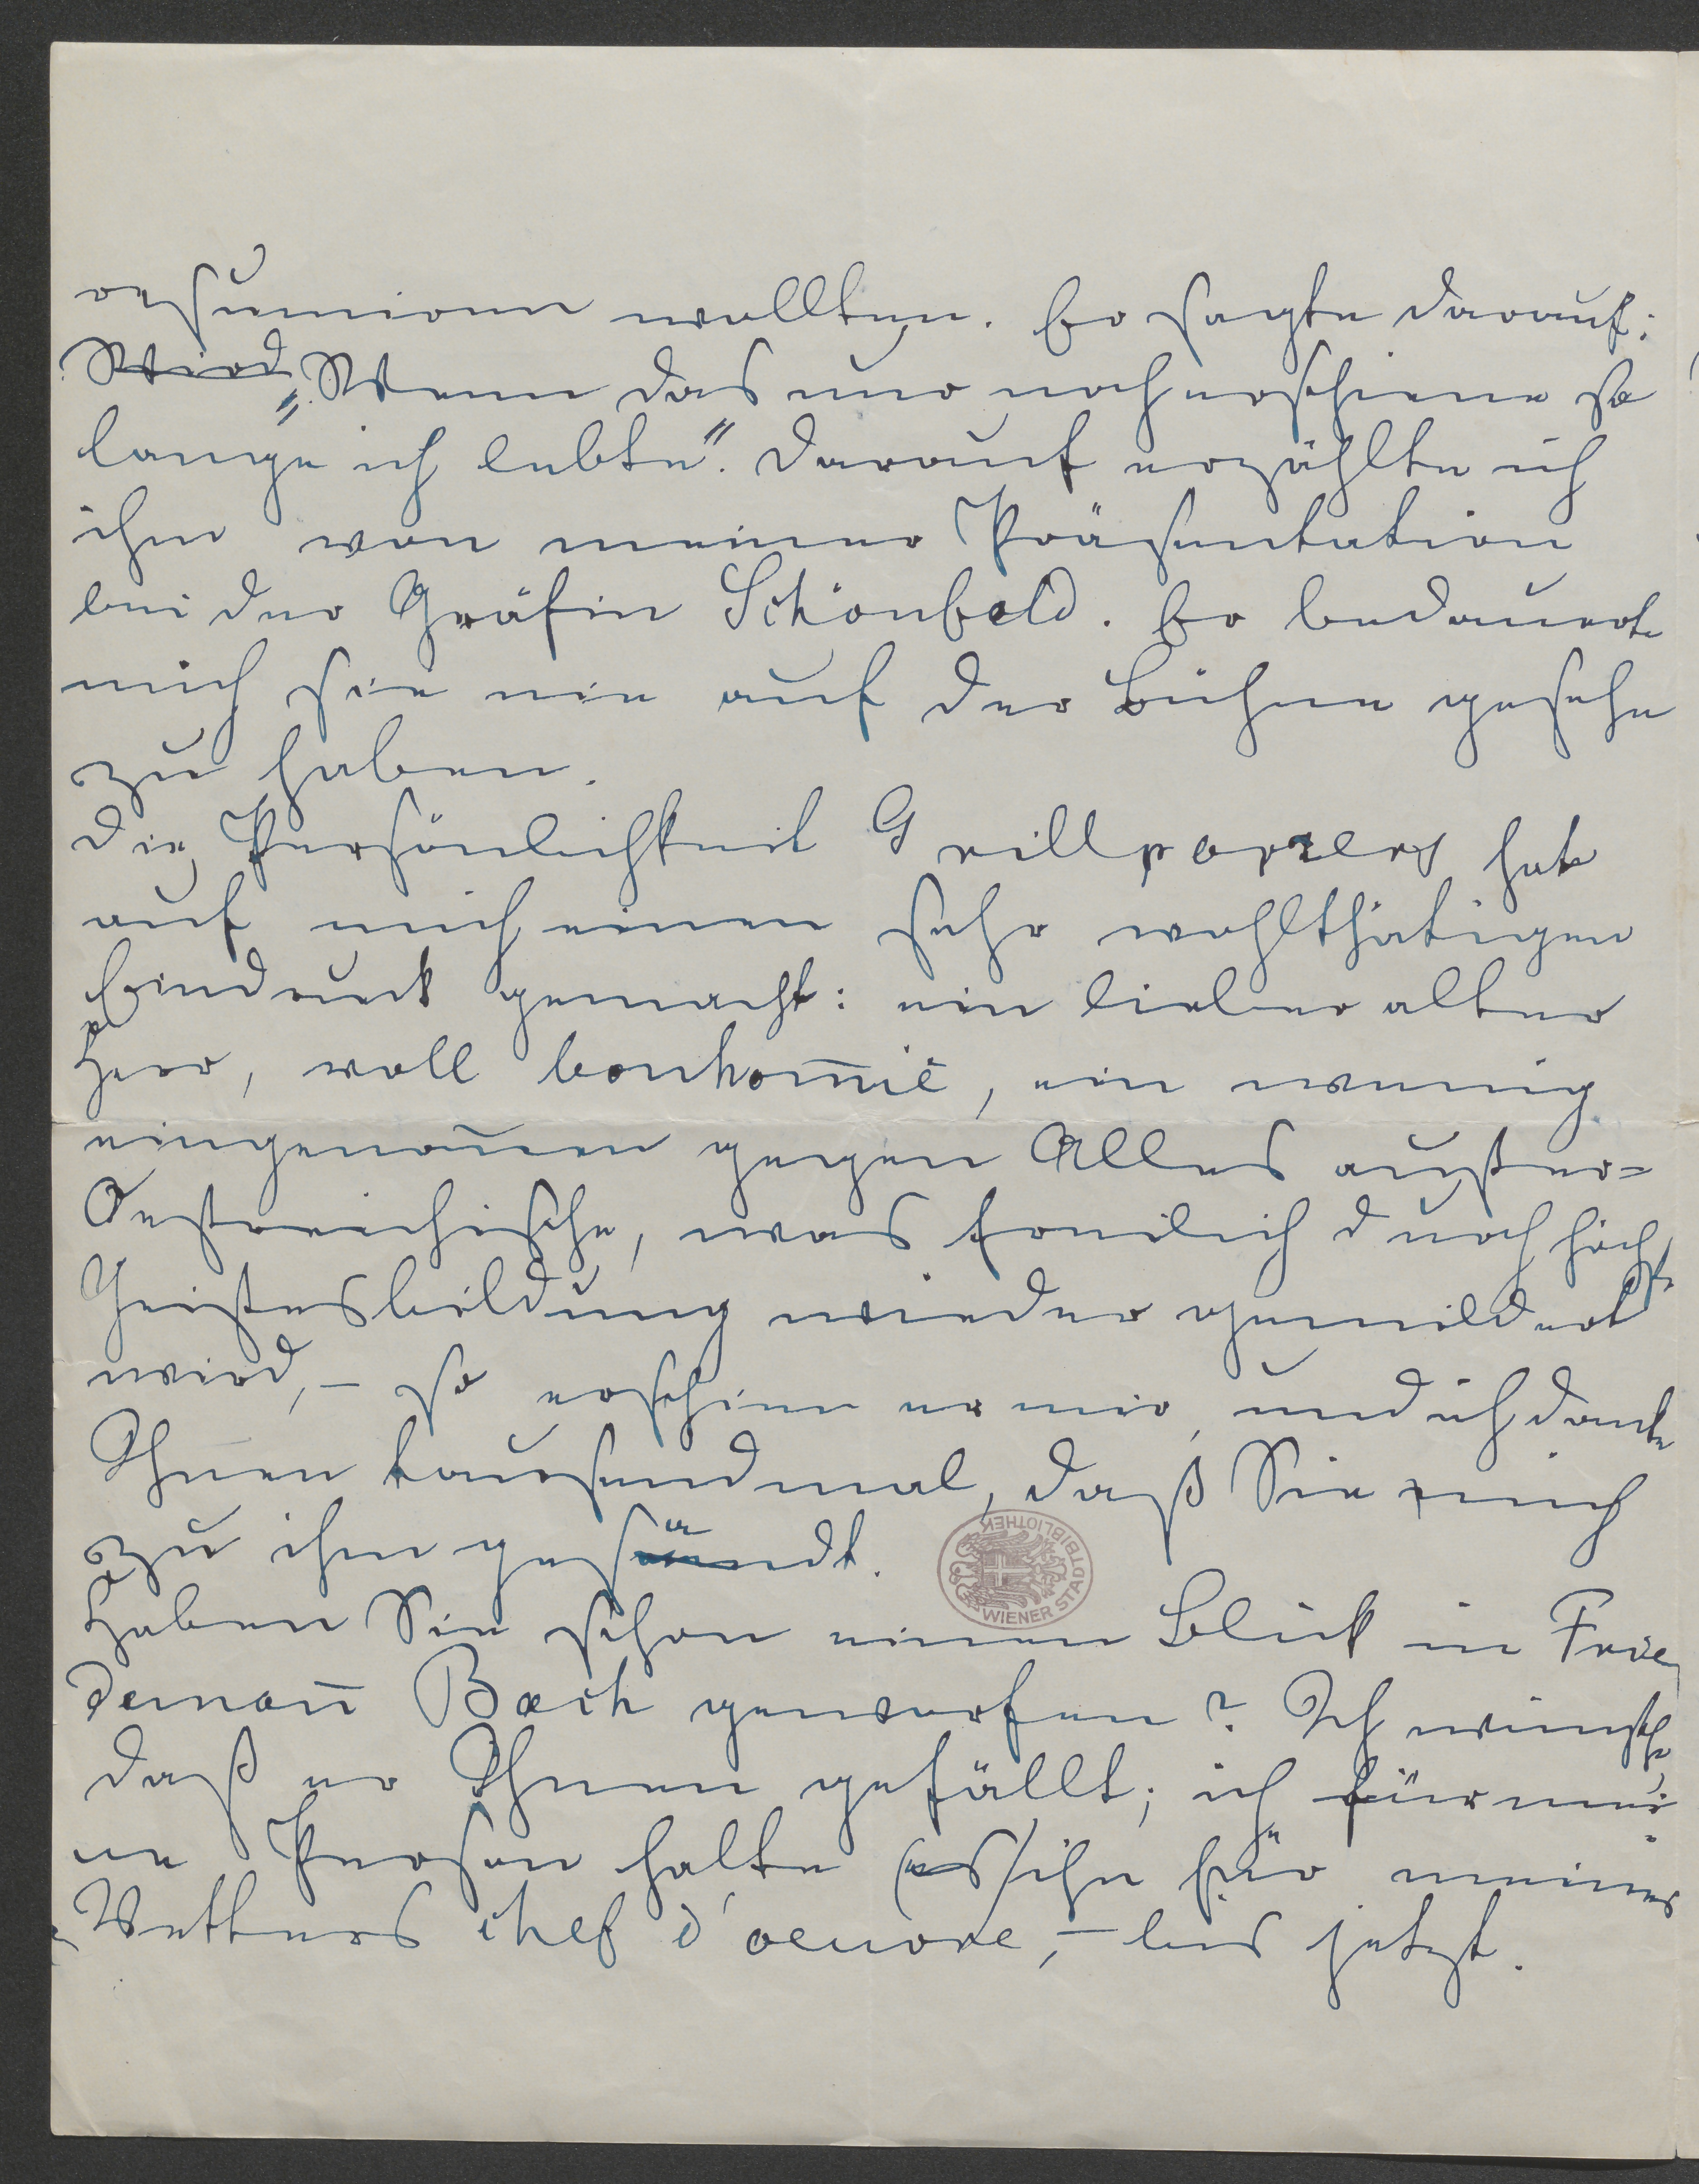 resumieren wollten. Er sagte darauf:
Wird „Wenn das nur noch erschiene so
lange ich lebte". Darauf erzählte ich
ihm von meiner Präsentation
bei der Gräfin Schönfeld. Er bedauerte
mich sie nie auf der Bühne gesehn
zu haben.
Die Persönlichkeit Grillparzers hat
auf mich einen sehr wohlthätigen
Eindruck gemacht: ein lieber alter
Herr, voll bonhom̅ie, ein wenig
eingenom̅en gegen Alles außer=
Oestreichische, was freilich durch höchste
Geistesbildung wieder gemildert
wird, – so erschien er mir, und ich danke
Ihnen tausendmal, daß Sie mich
zu ihm gesandt.
WIENER STADTBIBLIOTHEK
Haben Sie schon einen Blick in Frie
deman̅ Bach geworfen? Ich wünsche
daß er Ihnen gefällt; ich für mei
ne Person halte (es) ihn für meines
Vetters chef d'oeuvre, – bis jetzt.